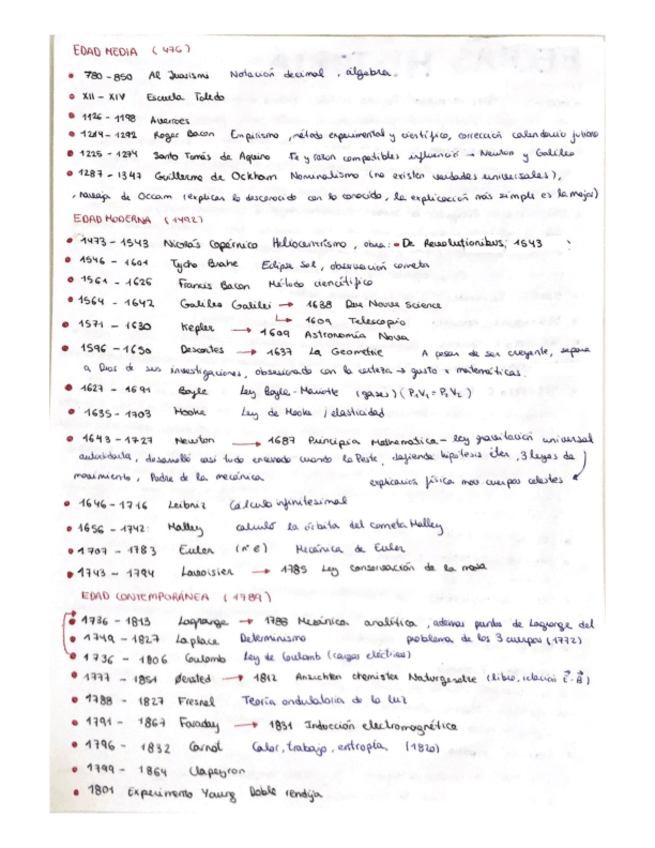 EDAD MEDIA (476)
• 780-850 Al Juarismi Notación decimal, álgebra.
• XII - XIV Escuela Toledo
• 1126 - 1198 Averroes
• 1214-1292 Roger Bacon Empirismo, método experimental y científico, corrección calendario juliano
• 1225 - 1274 Santo Tomás de Aquino Fe y razón compatibles influenció → Newton y Galileo
• 1287-1347 Guillermo de Ockham Nominalismo (no existen verdades universales),
, navaja de Occam (explicar lo desconocido con lo conocido, la explicación más simple es la mejor)
EDAD MODERNA (1492)
• 1473-1543 Nicolás Copérnico Heliocentrismo, obra: • De Revolutionibus, 1543
• 1546 - 1601 Tycho Brahe Eclipse Sol, observación cometa
• 1561 - 1626 Francis Bacon Método científico
• 1564 - 1642 Galileo Galilei → 1638 Due Nouve Science
↳ 1609 Telescopio
• 1571 - 1630 Kepler → 1609 Astronomía Nova
• 1596 - 1650 Descartes → 1637 La Geometrie A pesar de ser creyente, separa
a Dios de sus investigaciones, obsesionado con la certeza → gusto x matemáticas.
• 1627 - 1691 Boyle Ley Boyle-Mariotte (gases) (P₁V₁ = P₂V₂)
• 1635 - 1703 Hooke Ley de Hooke / elasticidad
• 1643-1727 Newton → 1687 Principia Mathematica - ley gravitación universal
autodidacta, desarrolló casi todo encerrado cuando la Peste, defiende hipótesis éter, 3 leyes de
movimiento, Padre de la mecánica explicación física mov cuerpos celestes
• 1646-1716 Leibniz Calculo infinitesimal
• 1656 - 1742: Halley calculó la órbita del cometa Halley
• 1707 - 1783 Euler (nº e) Mecánica de Euler
• 1743 - 1794 Lavoisier → 1785 Ley conservación de la masa
EDAD CONTEMPORÁNEA (1789)
• 1736 - 1813 Lagrange → 1788 Mecánica analítica, además puntos de Lagrange del
• 1749 - 1827 Laplace Determinismo problema de los 3 cuerpos (1772)
• 1736 - 1806 Coulomb Ley de Coulomb (cargas eléctricas)
• 1777 - 1851 Øersted → 1812 Ansichten chemister Naturgesetze (libro, relación E - B)
• 1788 - 1827 Fresnel Teoría ondulatoria de la luz
• 1791 - 1867 Faraday → 1831 Inducción electromagnética
• 1796 - 1832 Carnot Calor, trabajo, entropía. (1820)
• 1799 - 1864 Clapeyron
• 1801 Experimento Young Doble rendija